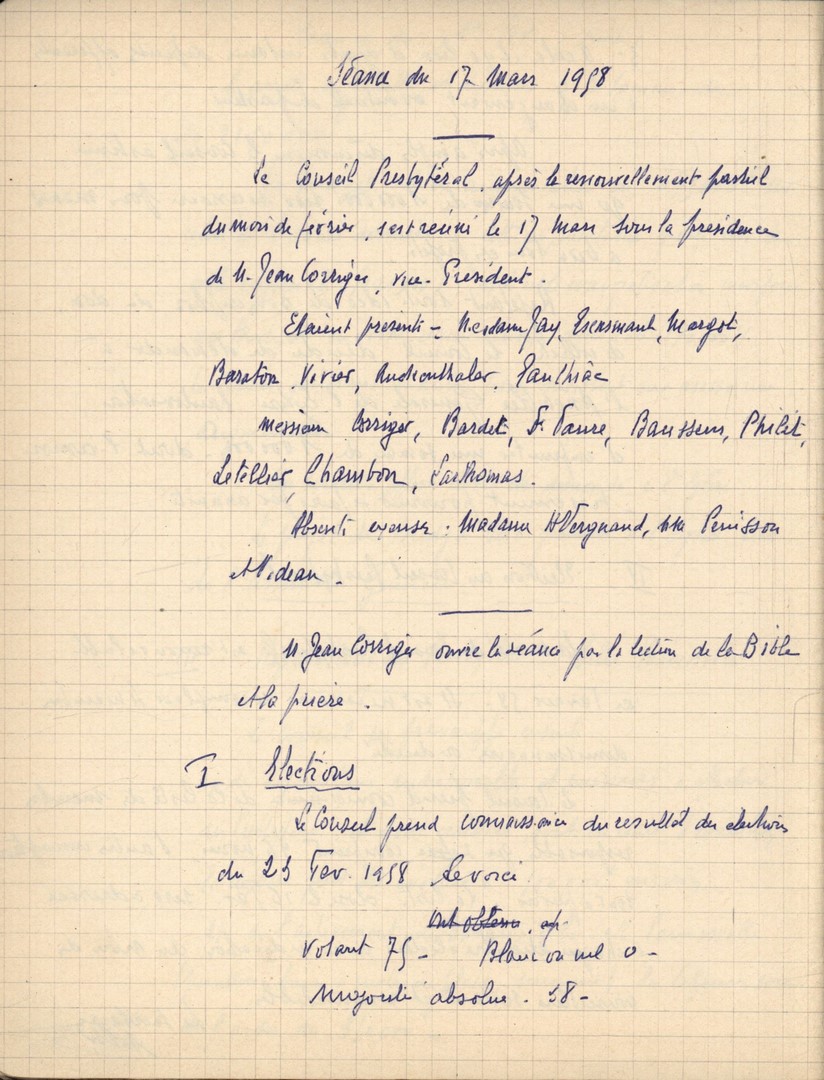 Séance du 17 Mars 1958
Le Conseil Presbytéral, après le renouvellement partiel
du mois de février, s'est réuni le 17 Mars sous la présidence
de M. Jean Corriger, vice-Président.
Etaient présents - Mesdames Jay, Escarmant, Margot,
Baraton, Vivier, Rudenthaler, Paulhiac
Messieurs Corriger, Bardet, Faure, Baussens, Philit,
Letellier, Chambon, Lasthomas.
Absents excusés : Madame Vergnaud, Penisson
et Videau.
M. Jean Corriger ouvre la séance par la lecture de la Bible
et la prière.
I Elections
Le Conseil prend connaissance du résultat des élections
du 23 Fev. 1958 Le voici
Ont obtenu
Votant 75 - Blanc ou nul 0 -
Majorité absolue . 38 -